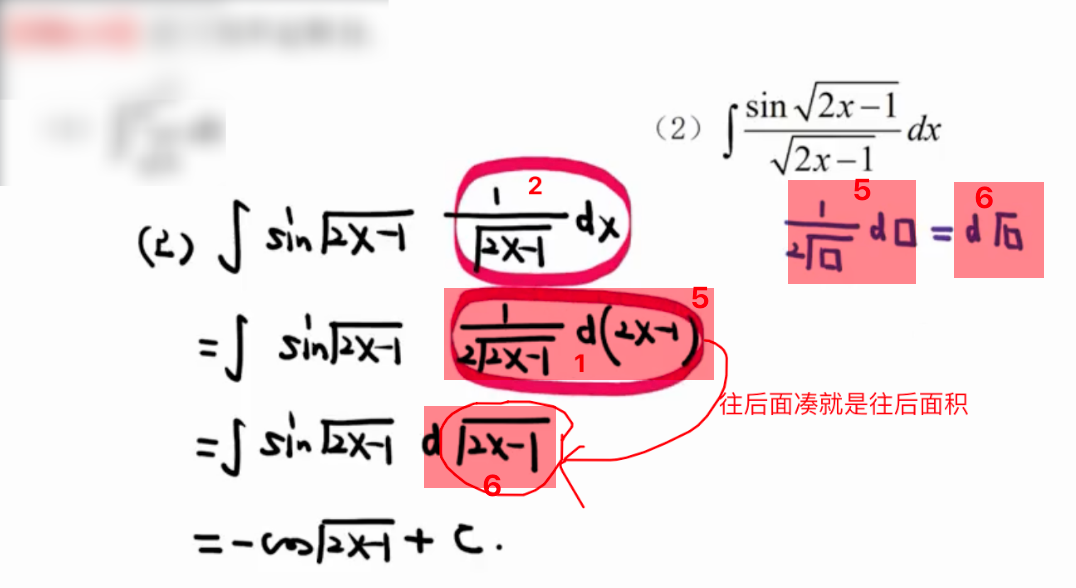 (2) ∫ sin√(2x−1) / √(2x−1) dx
1/(2√□) d□ = d√□
5
6
(2) ∫ sin√(2x-1) 1/√(2x-1) dx
2
= ∫ sin√(2x-1) 1/(2√(2x-1)) d(2x-1)
5
1
往后面凑就是往后面积
= ∫ sin√(2x-1) d√(2x-1)
6
= -cos√(2x-1) + C.